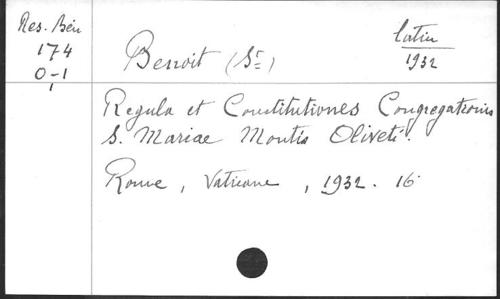 Res. Bén
174
0-1
Benoit (St)
latin
1932
Regula et Constitutiones Congregationis
S. Mariae Montis Oliveti.
Rome, Vaticane, 1932. 16